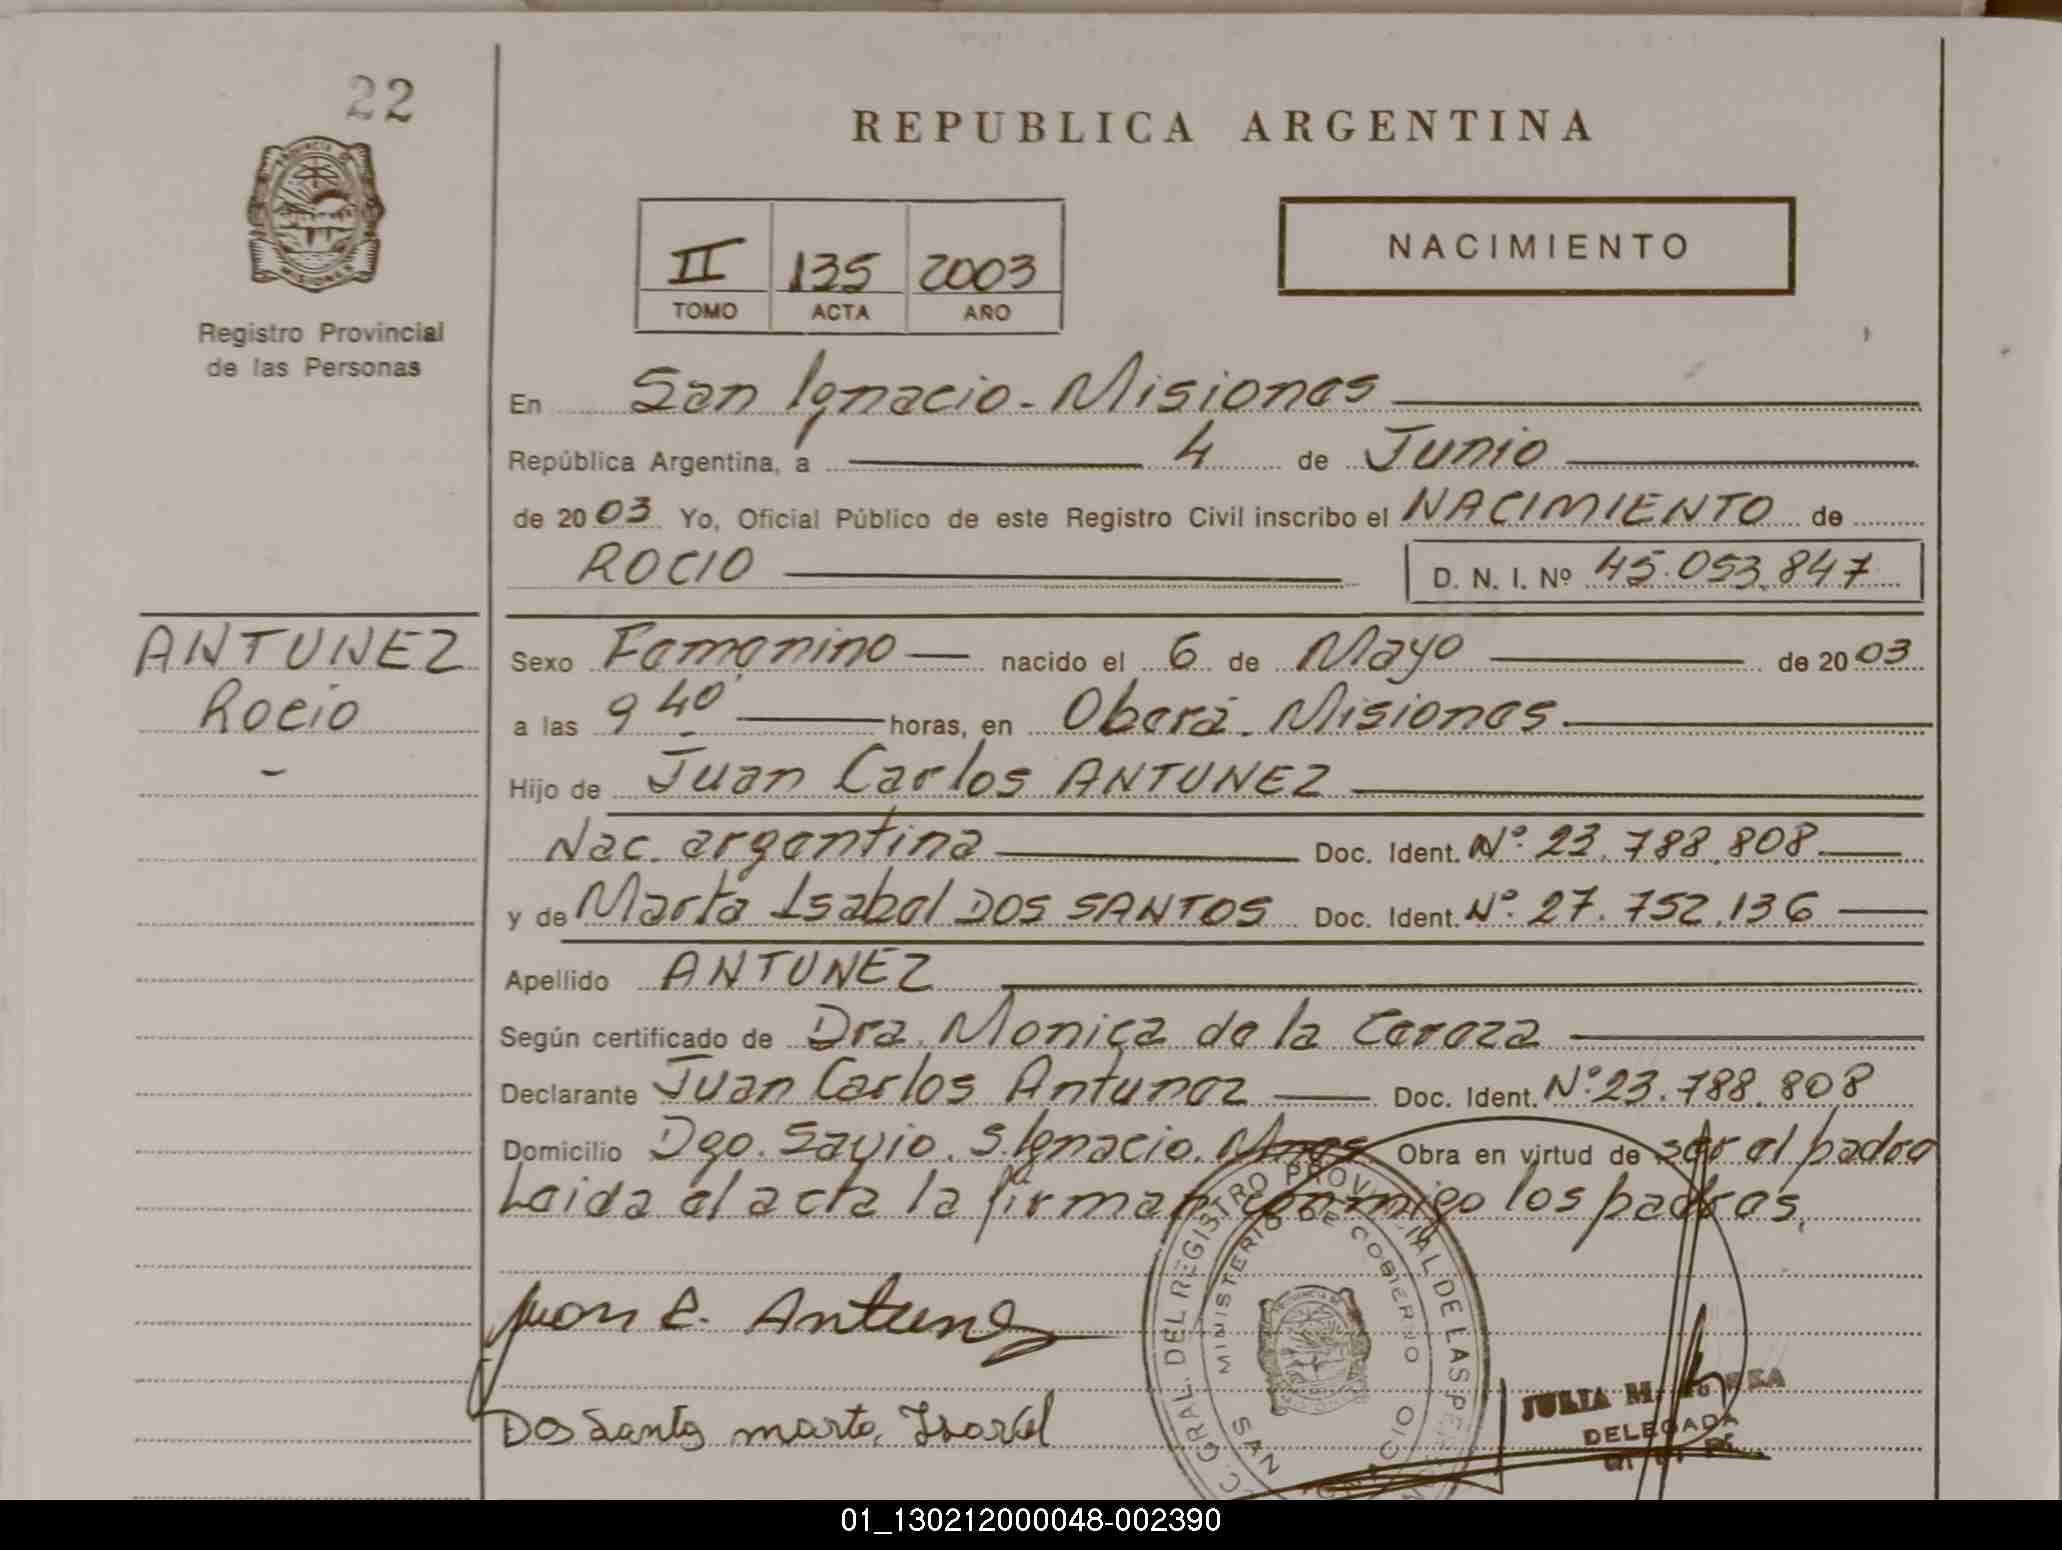 22
REPUBLICA ARGENTINA
PROVINCIA DE MISIONES
II 135 2003
TOMO ACTA AÑO
NACIMIENTO
Registro Provincial
de las Personas
En San Ignacio - Misiones
República Argentina, a 4 de Junio
de 2003 Yo, Oficial Público de este Registro Civil inscribo el NACIMIENTO de
ROCIO D. N. I. Nº 45.053.847
ANTUNEZ
Rocio
-
Sexo Femenino nacido el 6 de Mayo de 2003
a las 9 40 horas, en Oberá - Misiones
Hijo de Juan Carlos ANTUNEZ
Nac. argentina Doc. Ident. Nº 23.788.808
y de Marta Isabel DOS SANTOS Doc. Ident. Nº 27.752.136
Apellido ANTUNEZ
Según certificado de Dra. Monica de la
Declarante Juan Carlos Antunez Doc. Ident. Nº 23.788.808
Domicilio Dgo. Savio. S. Ignacio. Mnes. Obra en virtud de ser el padre
Leida el acta la firman conmigo los padres.
GRAL. DEL REGISTRO PROVINCIAL DE LAS PERSONAS
MINISTERIO DE GOBIERNO
SAN IGNACIO
Juan C. Antunez
Dos Santos marta Isabel
JULIA M.
DELEGADA
01_130212000048-002390